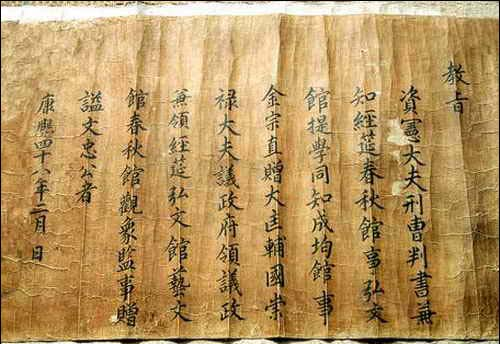 教旨
資憲大夫刑曹判書兼
知經筵春秋館事弘文
館提學同知成均館事
金宗直贈大匡輔國崇
禄大夫議政府領議政
兼領經筵弘文館藝文
館春秋館觀象監事贈
諡文忠公者
康熙四十八年二月 日